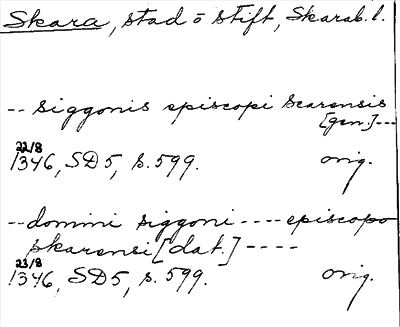 Skara, stad o stift, Skarab. l.
-- siggonis episcopi scarensis
[gen.]---
22/8
1346, SD 5, s. 599. orig.
-- domini siggoni ---- episcopo
skarensi [dat.] ----
23/8
1346, SD 5, s. 599. orig.